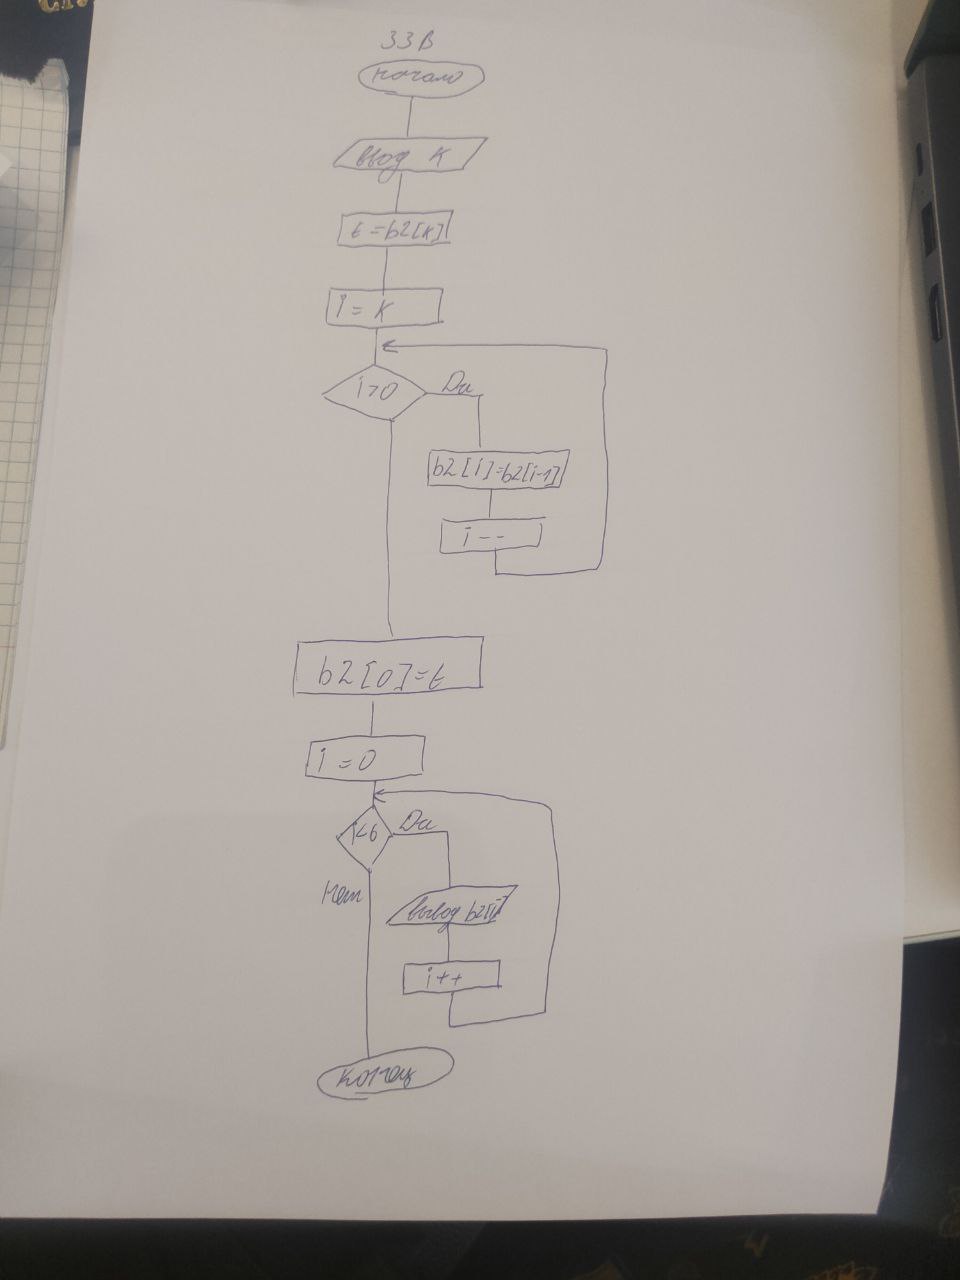 33В
начало
ввод K
t=b2[K]
i=K
i>0
Да
b2[i]=b2[i-1]
i--
b2[0]=t
i=0
i<6
Да
Нет
вывод b2[i]
i++
конец